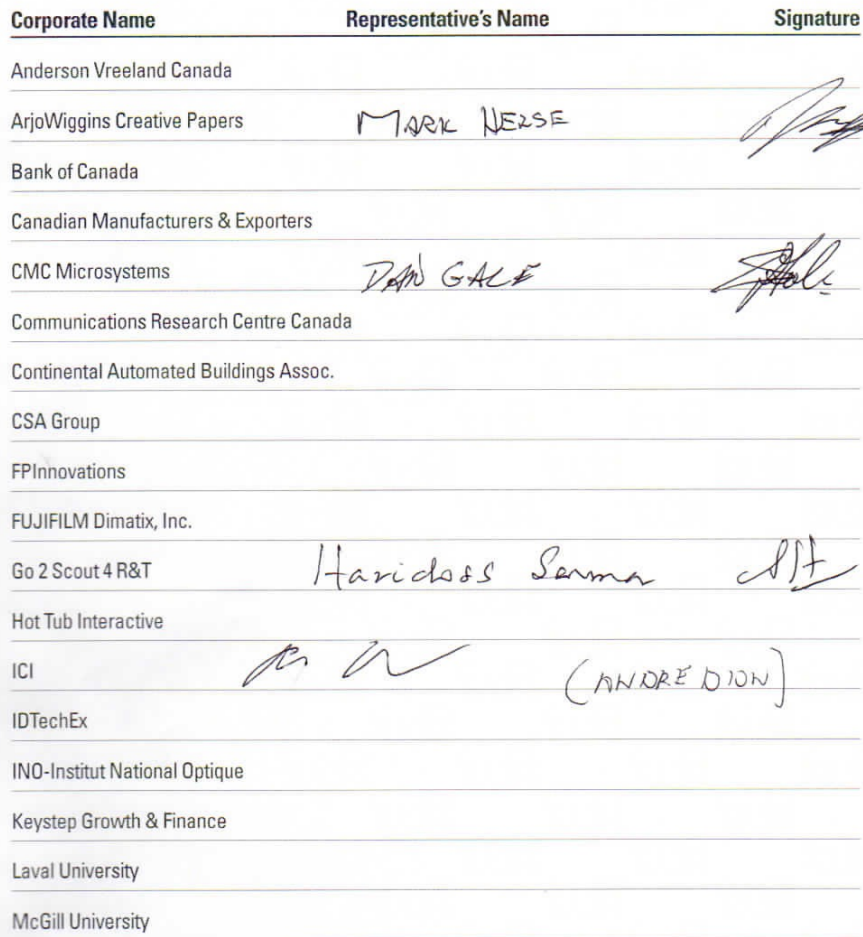 Corporate Name Representative's Name Signature
Anderson Vreeland Canada
ArjoWiggins Creative Papers MARK
Bank of Canada
Canadian Manufacturers & Exporters
CMC Microsystems DAN GALE
Communications Research Centre Canada
Continental Automated Buildings Assoc.
CSA Group
FPInnovations
FUJIFILM Dimatix, Inc.
Go 2 Scout 4 R&T Haridoss Sarma
Hot Tub Interactive
ICI (ANDRE DION)
IDTechEx
INO-Institut National Optique
Keystep Growth & Finance
Laval University
McGill University